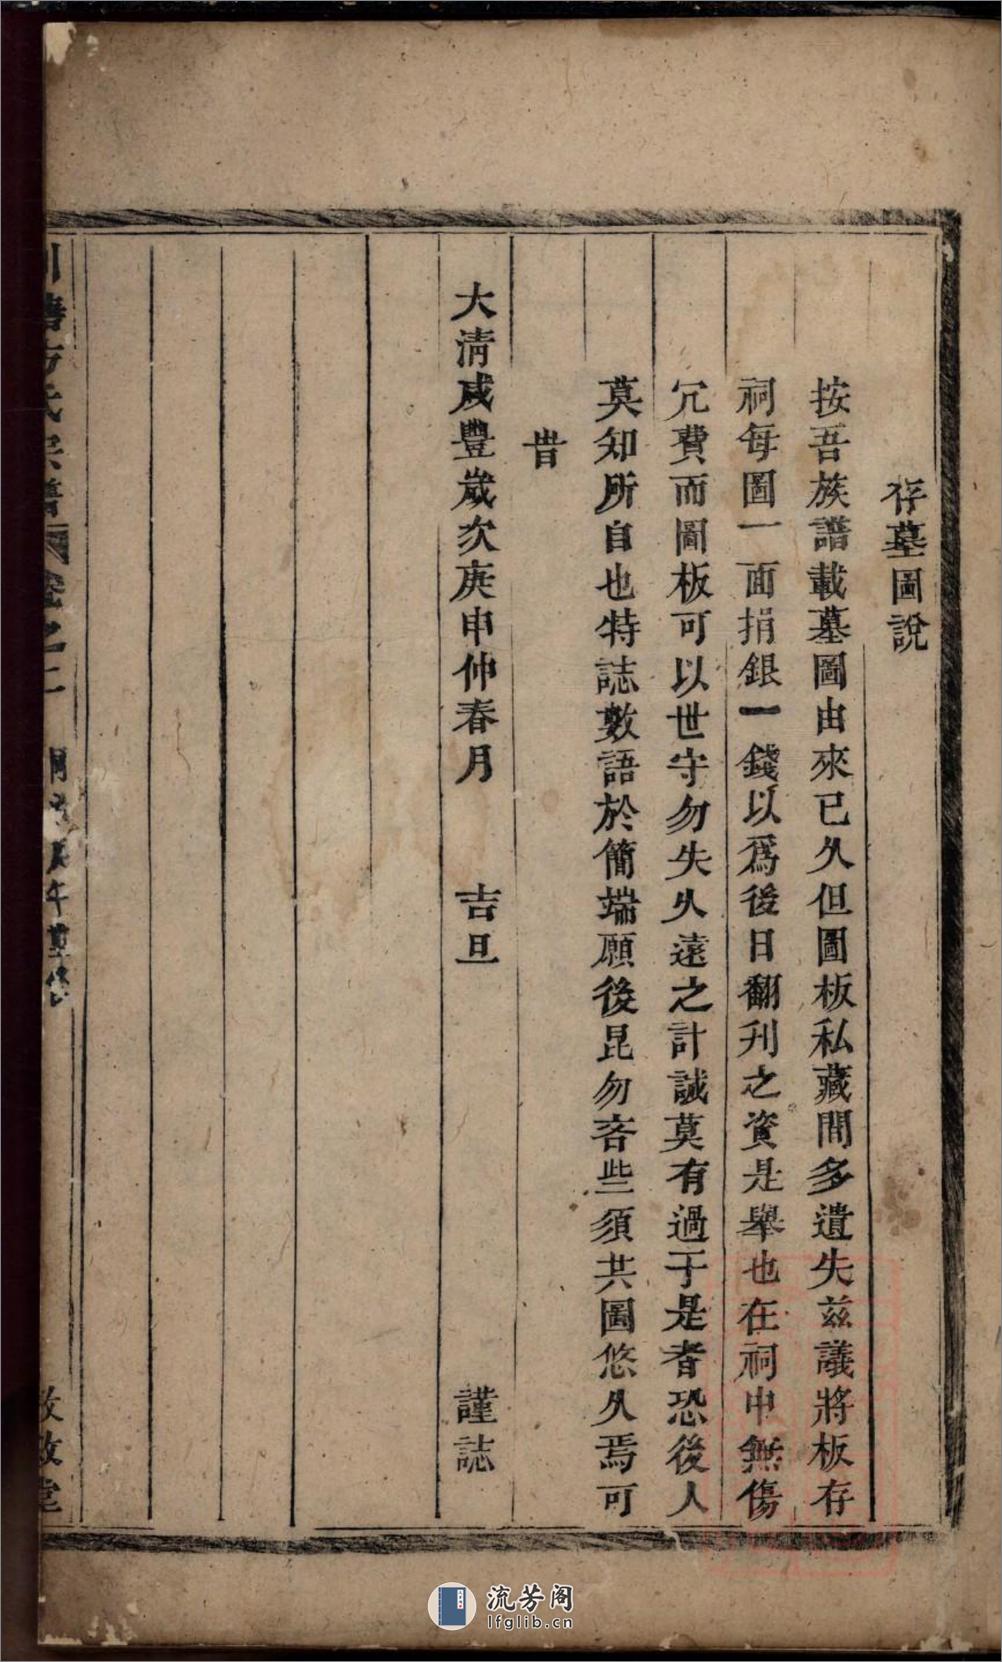 存墓圖說
按吾族譜載墓圖由來已久但圖板私藏間多遺失茲議將板存
祠每圖一面捐銀一錢以爲後日翻刋之資是舉也在祠中無傷
冗費而圖板可以世守勿失久遠之計誠莫有過于是者恐後人
莫知所自也特誌數語於簡端願後昆勿吝些須共圖悠久焉可
旹
大清咸豐歲次庚申仲春月 吉旦 謹誌
方氏宗譜 卷之二
流芳阁
lfglib.cn